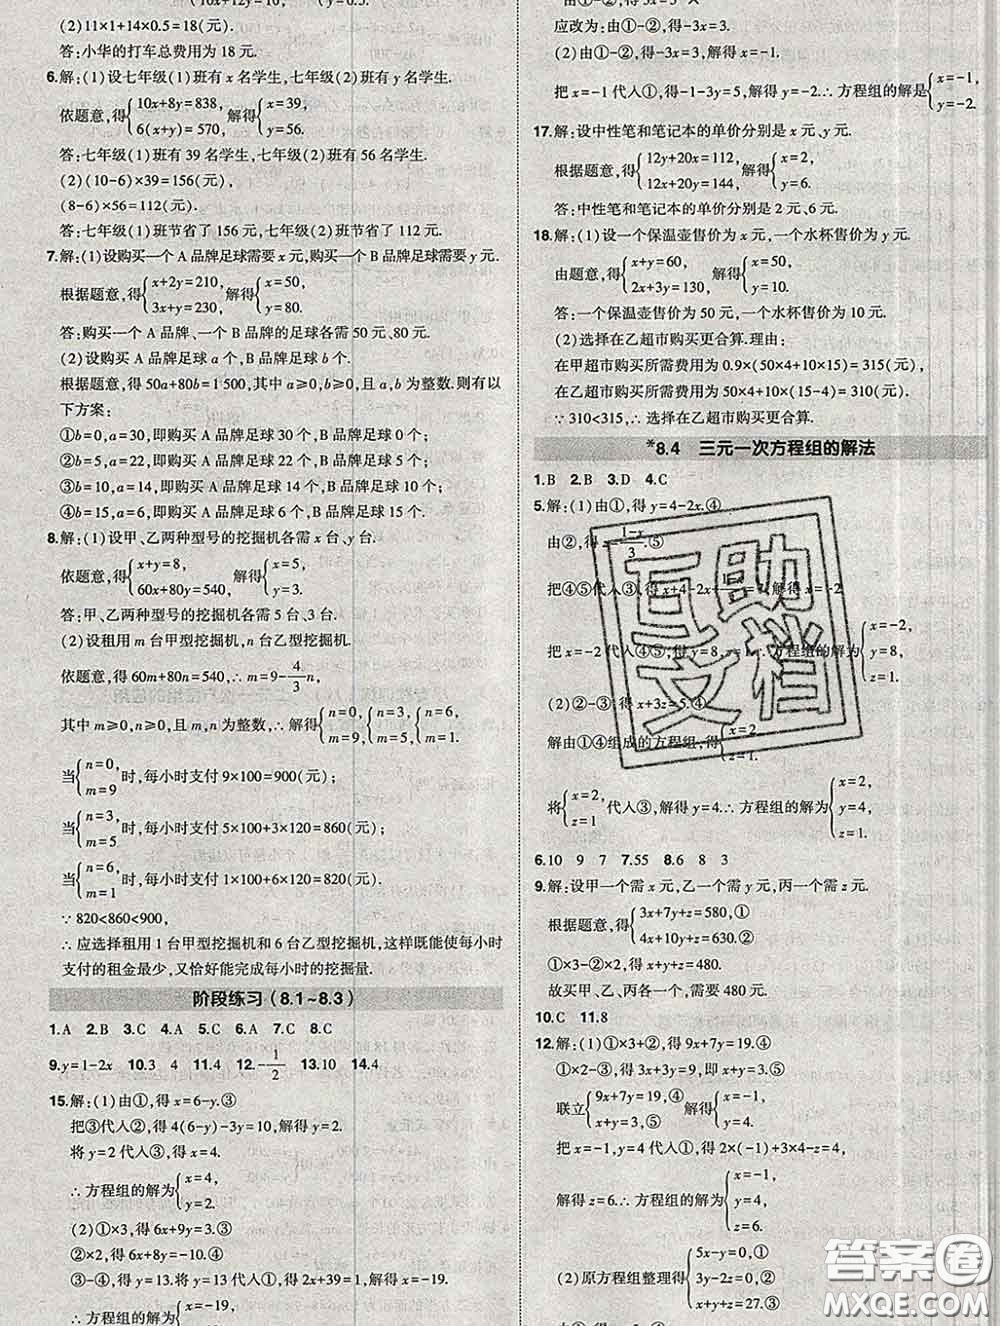 10x+12y=10, y=0.5.
(2)11×1+14×0.5=18(元).
答:小华的打车总费用为 18 元.
6.解:(1)设七年级(1)班有 x 名学生,七年级(2)班有 y 名学生.
依题意,得{10x+8y=838, 6(x+y)=570, 解得{x=39, y=56.
答:七年级(1)班有 39 名学生,七年级(2)班有 56 名学生.
(2)(10-6)×39=156(元),
(8-6)×56=112(元).
答:七年级(1)班节省了 156 元,七年级(2)班节省了 112 元.
7.解:(1)设购买一个 A 品牌足球需要 x 元,购买一个 B 品牌足球需要 y 元.
根据题意,得{x+2y=210, 3x+y=230, 解得{x=50, y=80.
答:购买一个 A 品牌、一个 B 品牌的足球各需 50 元、80 元.
(2)设购买 A 品牌足球 a 个,B 品牌足球 b 个.
根据题意,得 50a+80b=1 500,其中 a≥0,b≥0,且 a,b 为整数.则有以
下方案:
①b=0,a=30,即购买 A 品牌足球 30 个,B 品牌足球 0 个;
②b=5,a=22,即购买 A 品牌足球 22 个,B 品牌足球 5 个;
③b=10,a=14,即购买 A 品牌足球 14 个,B 品牌足球 10 个;
④b=15,a=6,即购买 A 品牌足球 6 个,B 品牌足球 15 个.
8.解:(1)设甲、乙两种型号的挖掘机各需 x 台、y 台.
依题意,得{x+y=8, 60x+80y=540, 解得{x=5, y=3.
答:甲、乙两种型号的挖掘机各需 5 台、3 台.
(2)设租用 m 台甲型挖掘机,n 台乙型挖掘机.
依题意,得 60m+80n=540,化简,得 m=9-4/3n,
其中 m≥0,n≥0,且 m,n 为整数,∴{n=0, m=9,{n=3, m=5,{n=6, m=1.
当{n=0, m=9时,每小时支付 9×100=900(元);
当{n=3, m=5时,每小时支付 5×100+3×120=860(元);
当{n=6, m=1时,每小时支付 1×100+6×120=820(元).
∵ 820<860<900,
∴ 应选择租用 1 台甲型挖掘机和 6 台乙型挖掘机,这样既能使每小时
支付的租金最少,又恰好能完成每小时的挖掘量.
阶段练习(8.1~8.3)
1.A 2.B 3.C 4.A 5.C 6.A 7.C 8.C
9.y=1-2x 10.3 4 11.4 12.-1/2 13.10 14.4
15.解:(1)由①,得 x=6-y.③
把③代入②,得 4(6-y)-3y=10,解得 y=2.
将 y=2 代入③,得 x=4.
∴ 方程组的解为{x=4, y=2.
(2)①×3,得 6x+9y=3.③
②×2,得 6x+8y=-10.④
③-④,得 y=13.将 y=13 代入①,得 2x+39=1,解得 x=-19.
∴ 方程组的解为{x=-19,
应改为:由①-②,得-3x=3.
(2)由①-②,得-3x=3,解得 x=-1.
把 x=-1 代入①,得-1-3y=5,解得 y=-2.∴ 方程组的解是{x=-1, y=-2.
17.解:设中性笔和笔记本的单价分别是 x 元、y 元.
根据题意,得{12y+20x=112, 12x+20y=144, 解得{x=2, y=6.
答:中性笔和笔记本的单价分别是 2 元、6 元.
18.解:(1)设一个保温壶售价为 x 元,一个水杯售价为 y 元.
由题意,得{x+y=60, 2x+3y=130, 解得{x=50, y=10.
答:一个保温壶售价为 50 元,一个水杯售价为 10 元.
(2)选择在乙超市购买更合算.理由:
在甲超市购买所需费用为 0.9×(50×4+10×15)=315(元),
在乙超市购买所需费用为 50×4+10×(15-4)=310(元).
∵ 310<315,∴ 选择在乙超市购买更合算.
*8.4 三元一次方程组的解法
1.B 2.B 3.D 4.C
5.解:(1)由①,得 y=4-2x.④
由②,得 1-x/3.⑤
把④⑤代入③,得 x+4-2x+ 解得 x=-2
把 x=-2 代入④⑤,得 y=8,z=1.∴ 方程组的解为{x=-2, y=8, z=1.
(2)②-③,得 x+3z=5.④
解由①④组成的方程组,得{x=2, z=1.
将{x=2, z=1代入③,解得 y=4.∴ 方程组的解为{x=2, y=4, z=1.
6.10 9 7 7.55 8.6 8 3
9.解:设甲一个需 x 元,乙一个需 y 元,丙一个需 z 元.
根据题意,得{3x+7y+z=580,① 4x+10y+z=630.②
①×3-②×2,得 x+y+z=480.
故买甲、乙、丙各一个,需要 480 元.
10.C 11.8
12.解:(1)①×3+②,得 9x+7y=19.④
①×2-③,得 3x+3y=9,即 x+y=3.⑤
联立{9x+7y=19,④ x+y=3,⑤ 解得{x=-1, y=4.
把 x=-1,y=4 代入①,得 2×(-1)+3×4-z=4,
解得 z=6.∴ 方程组的解为{x=-1, y=4, z=6.
(2)原方程组整理得{5x-y=0,① 3y-2z=0,② x+y+z=27.③
互助文档
答案圈
MXQE.COM